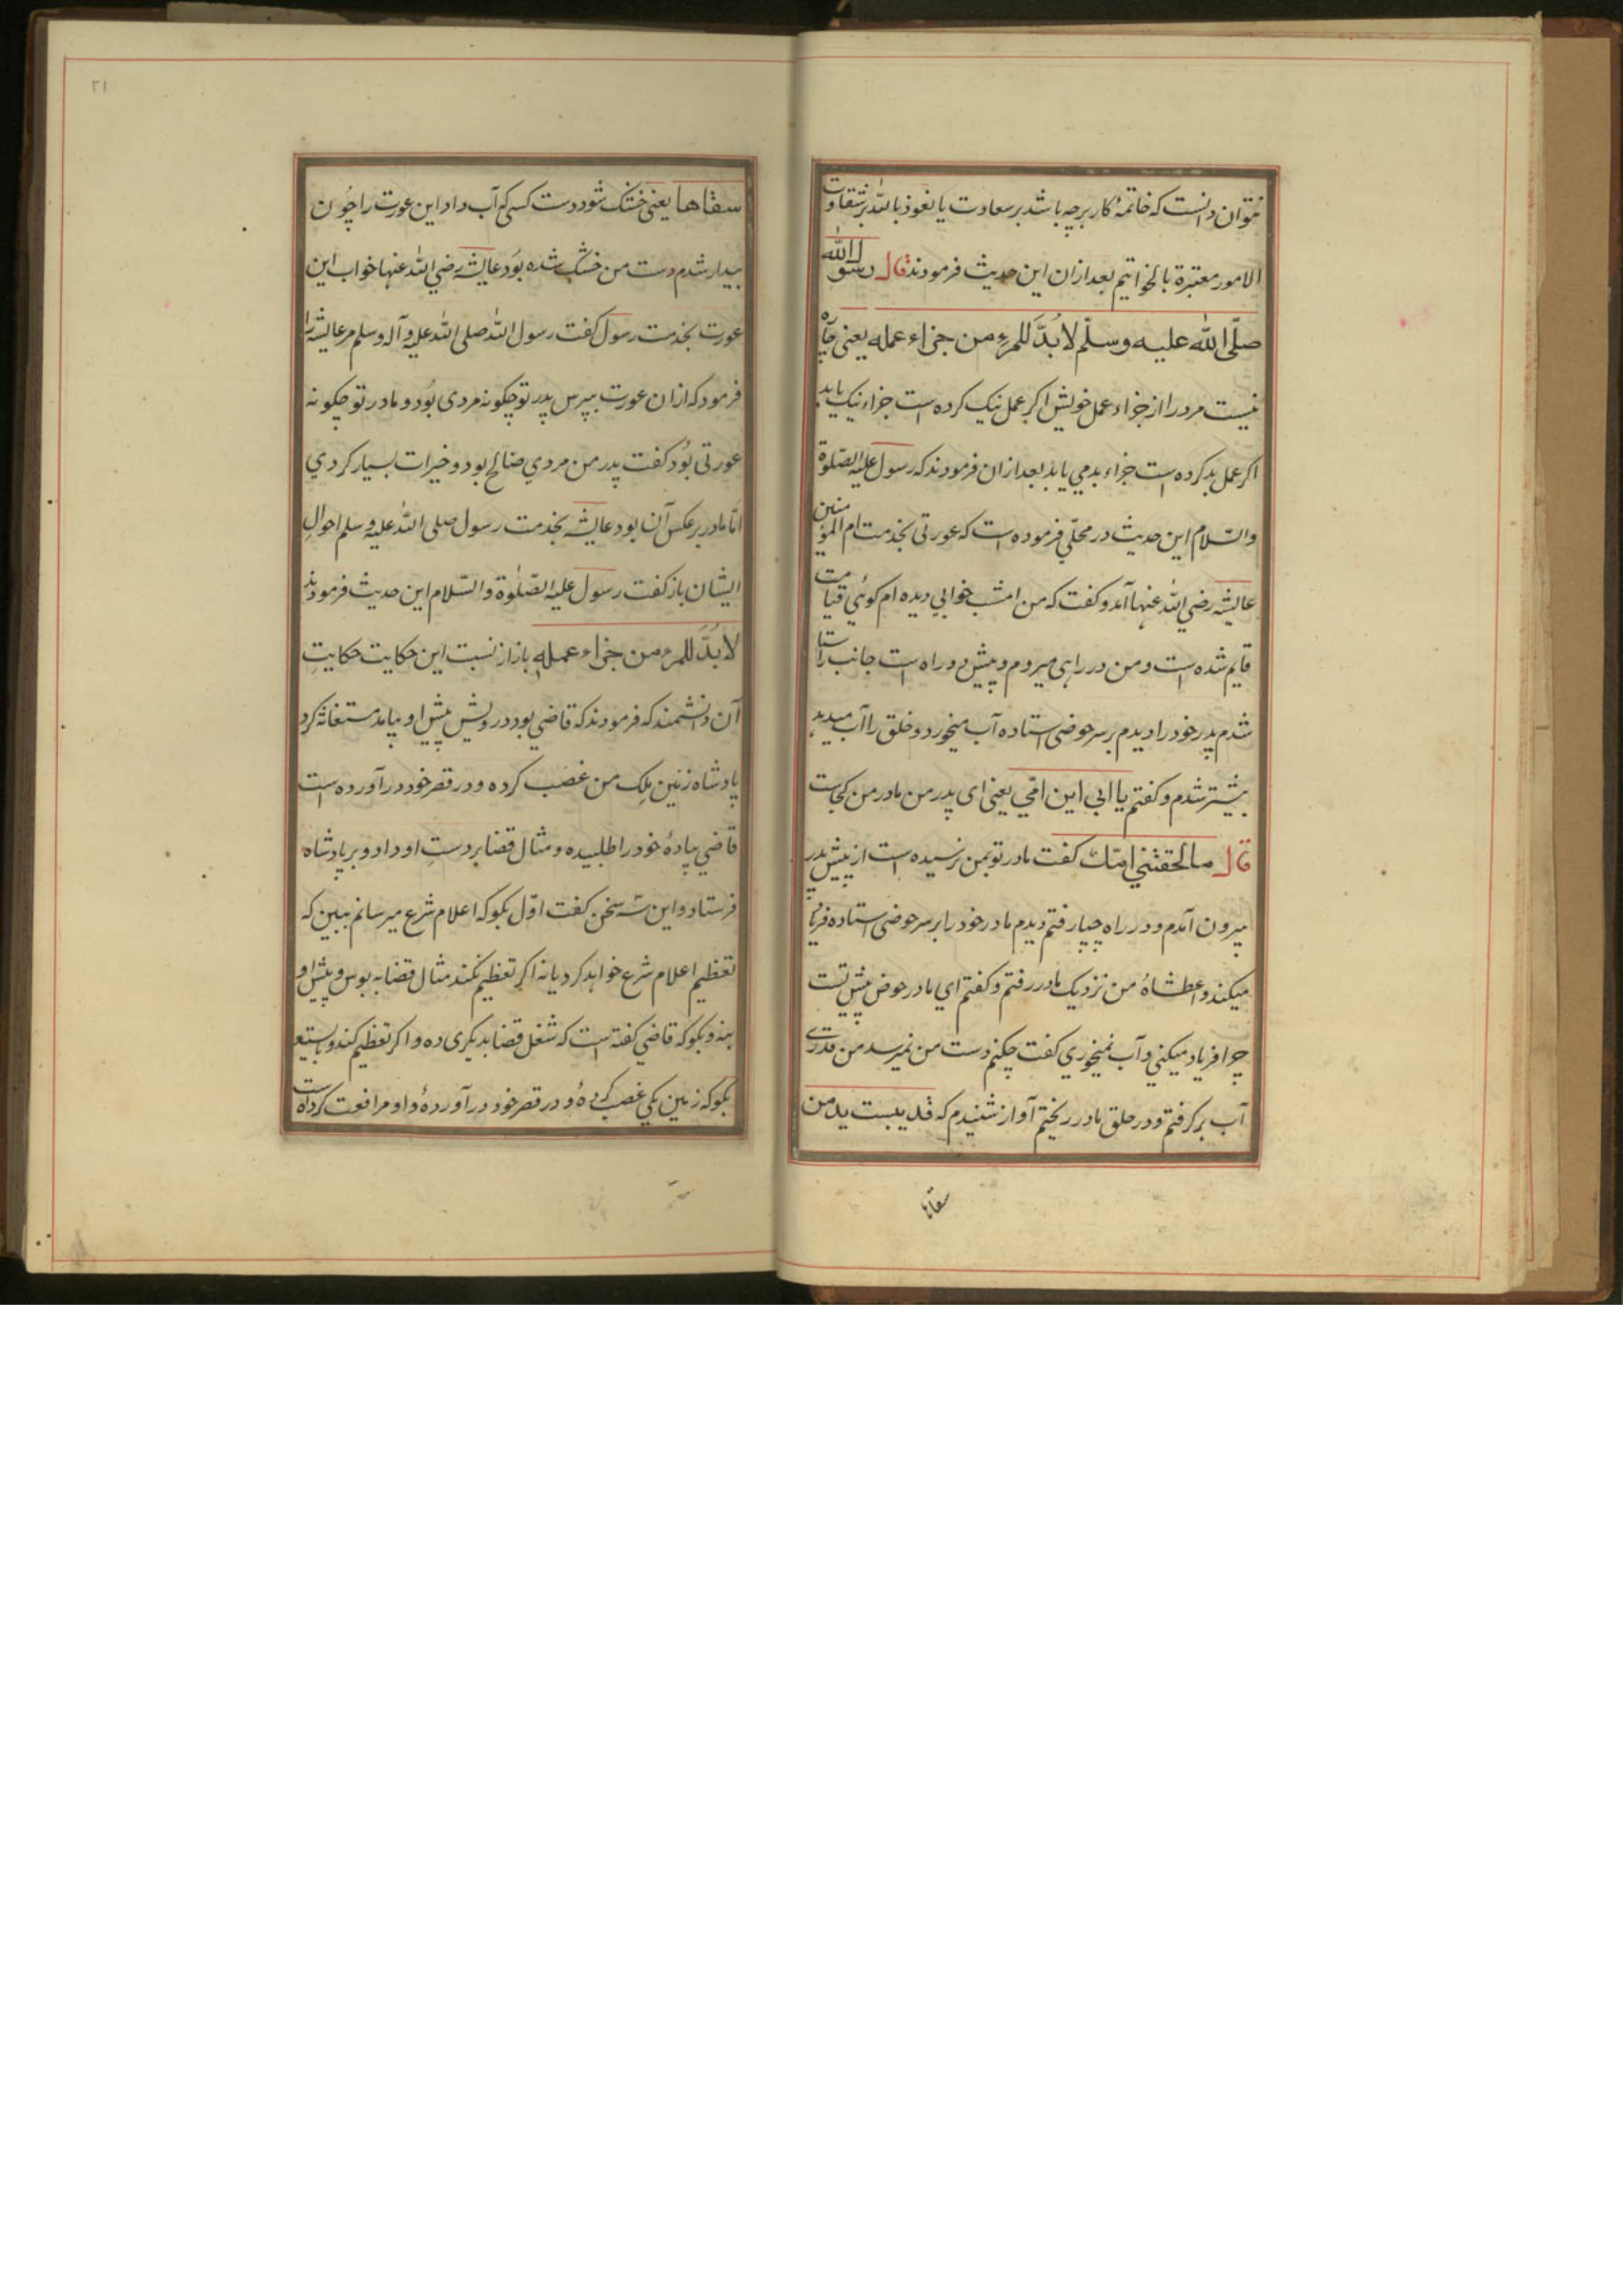 نتوان دانست که خاتمهٔ کار بر چه باشد بر سعادت یا نعوذ بالله بر شقاوت
الامور معتبرة بالخواتیم بعد ازان این حدیث فرمودند قال رسول الله
صلّی الله علیه وسلّم لا بُدَّ للمرءِ من جزاء عمله یعنی چاره
نیست مرد را از جزاء عمل خویش اکر عمل نیک کرده است جزاء نیک یابد
اکر عمل بد کرده است جزاء بد می یابد بعد ازان فرمودند که رسول علیه الصّلوة
والسّلام این حدیث در محلّی فرموده است که عورتی بخدمت ام المؤمنین
عایشه رضی الله عنها آمد و کفت که من امشب خوابی دیده ام کوئی قیامت
قایم شده است و من در راهی میروم و پیش دو راه است جانب راستا
شدم پدر خود را دیدم بر سر حوضی استاده آب میخورد و خلق را آب میدهد
پیشتر شدم و کفتم یا ابی این امّی یعنی ای پدر من مادر من کجاست
قال ما لحقتنی امّک کفت مادر تو بمن نرسیده است از پیش پدر
بیرون آمدم و در راه چپا رفتم دیدم مادر خود را بر سر حوضی استاده فریاد
میکند واعطشاهُ من نزدیک مادر رفتم و کفتم ای مادر حوض پیش تست
چرا فریاد میکنی و آب نمیخوری کفت چکنم دست من نمیرسد من قدری
آب برکرفتم و در حلق مادر ریختم آواز شنیدم که قد یبست ید من
سقاها
٢١
سقاها یعنی خشک شود دست کسی که آب داد این عورت را چون
بیدار شدم دست من خشک شده بود عایشه رضی الله عنها خواب این
عورت بخدمت رسول کفت رسول الله صلی الله علیه وآله وسلم مر عایشه را
فرمود که ازان عورت بپرس پدر تو چکونه مردی بُود و مادر تو چکونه
عورتی بُود کفت پدر من مردی صالح بود و خیرات بسیار کردی
امّا مادر برعکس آن بود عایشه بخدمت رسول صلی الله علیه وسلم احوالِ
ایشان باز کفت رسول علیه الصّلوٰة والسّلام این حدیث فرمودند
لا بُدَّ للمرء من جزاء عمله باز از نسبت این حکایت حکایتِ
آن دانشمند که فرمودند که قاضی بود درویش پیش او بیامد مستغاثه کرد
پادشاه زمین مِلک من غصب کرده و در قصر خود درآورده است
قاضی پیادهٔ خود را طلبیده و مثال قضا بر دستِ او داد و بر پادشاه
فرستاد و این سه سخن کفت اوّل بکو که اعلام شرع میرسانم ببین که
تعظیم اعلام شرع خواهد کرد یا نه اکر تعظیم نکند مثال قضا به بوس و پیش او
بنه و بکو که قاضی کفته است که شغل قضا بدیکری ده و اکر تعظیم کند و بایستد
بکو که زمین یکی غصب کردهٔ و در قصر خود درآوردهٔ و او مرافعت کرده است